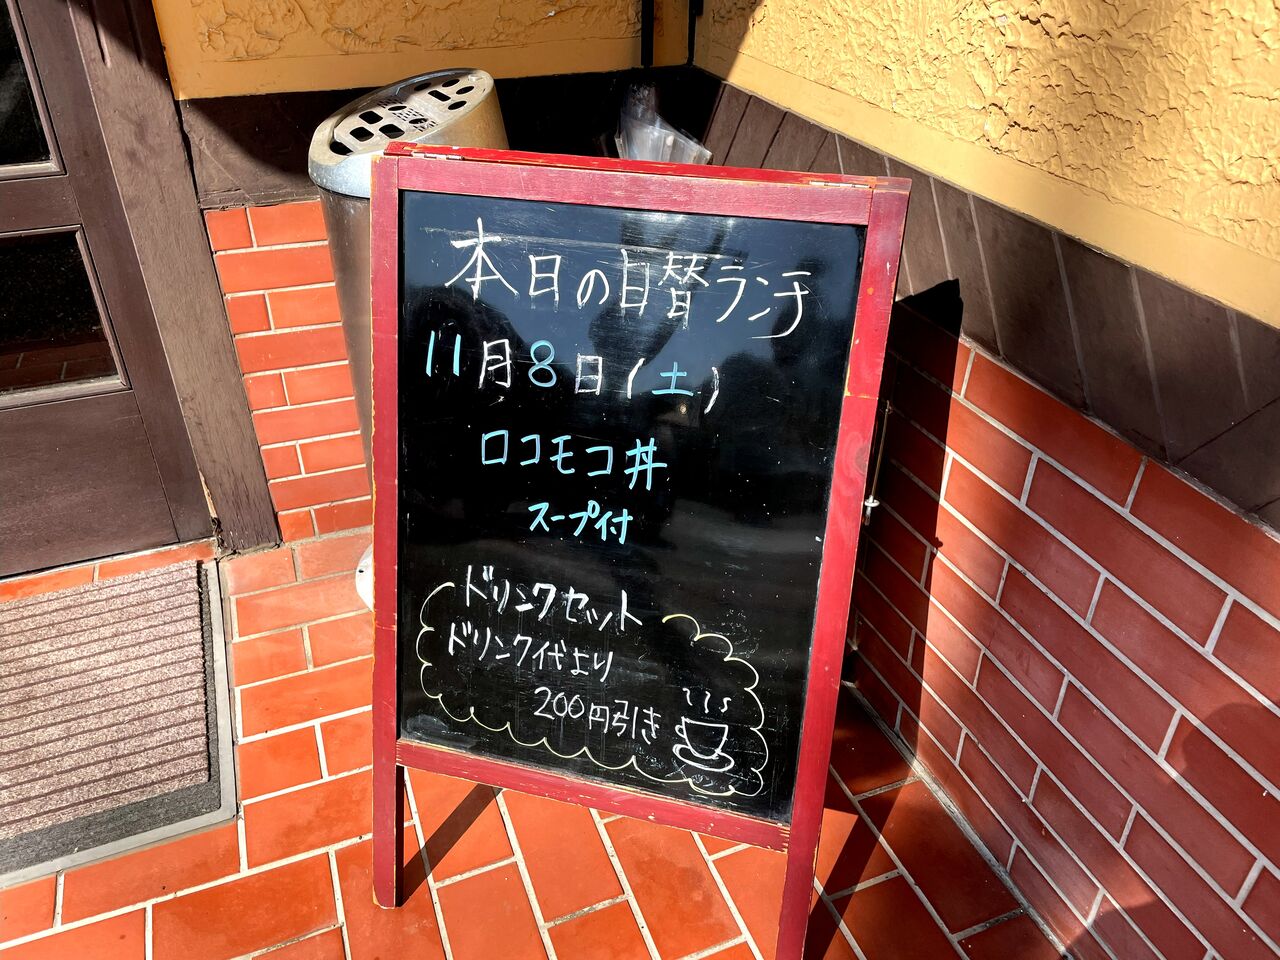 本日の日替ランチ
11月8日(土)
ロコモコ丼
スープ付
ドリンクセット
ドリンク代より
200円引き